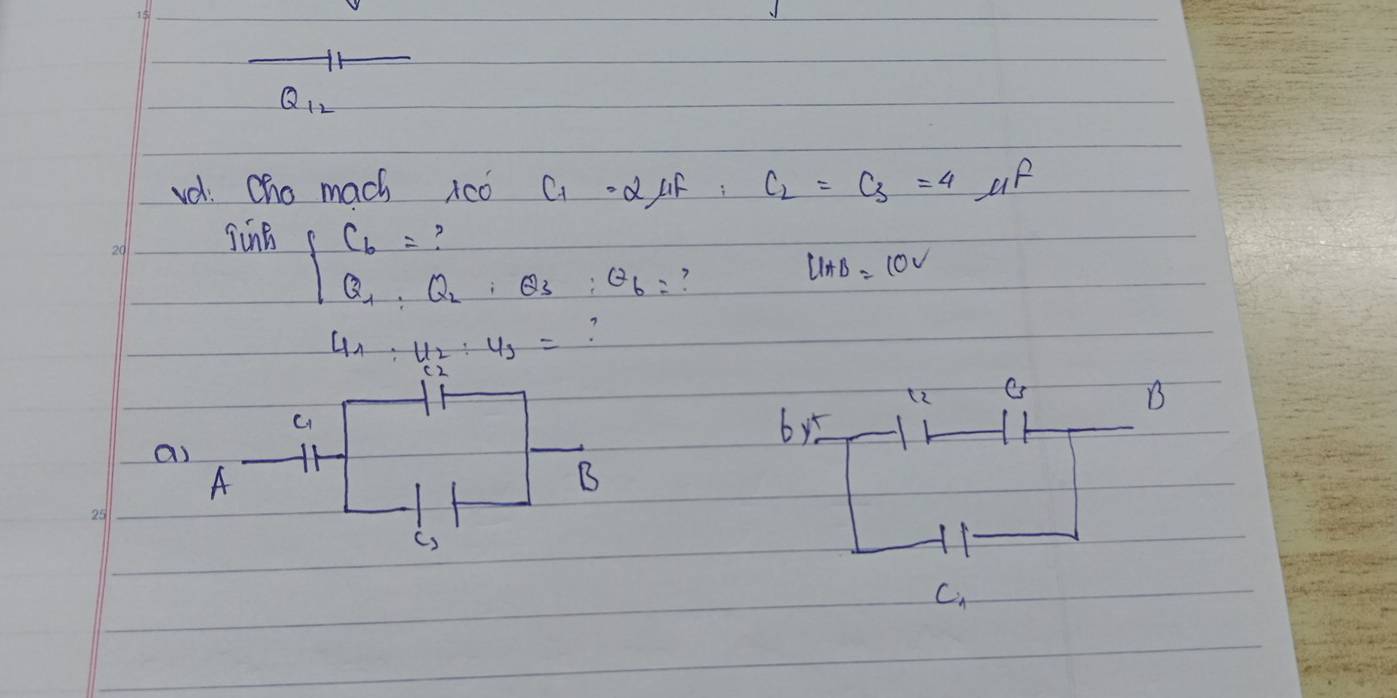 15
Q12
vd: Cho mạch có C1 = 2 μF ; C2 = C3 = 4 μF
20
Tính Cb = ?
Q1 ; Q2 ; Q3 ; Qb = ?
UAB = 10V
U1 ; U2 ; U3 = ?
C2
C1
a)
A
B
C3
25
b)
C2
C3
B
C1